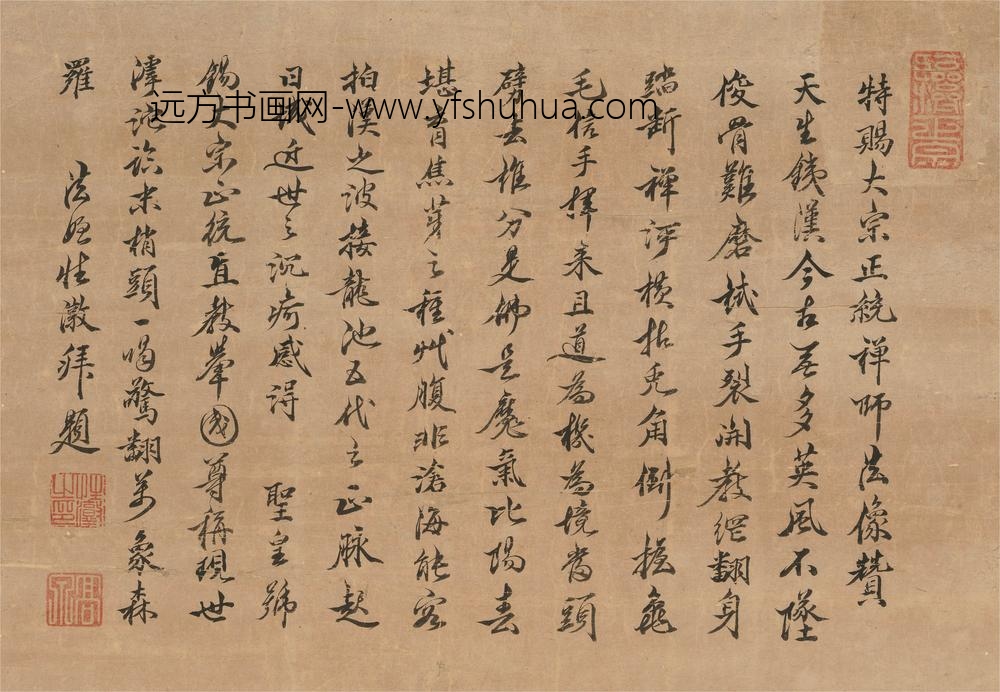 特賜大宗正統禪師法像贊
天生銕漢今古無多英風不墜
俊骨難磨棫手裂開教網翻身
踏斷禪河橫拈兎角倒握龜
毛信手揮来且道為機為境當頭
劈去椎分是佛是魔氣比陽春
堪育焦芽之種艸腹非滄海能容
拍漢之波接龍池五代之正脉起
日域近世之沉痾感得 聖皇號
錫大宗正統直教舉國尊稱現世
澤 末梢頭一喝驚翻萬象森
羅 法 性潡拜題
远方书画网-www.yfshuhua.com